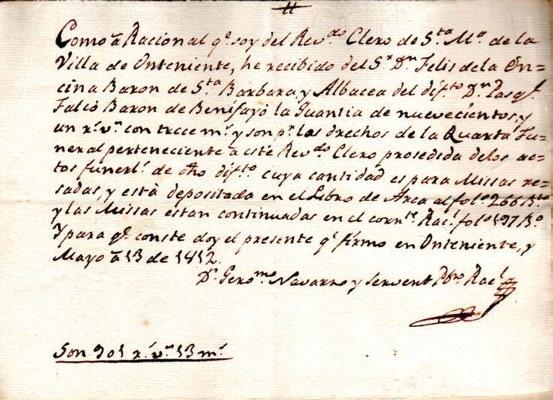 Como â Racional q.e soy del Rev.do Clero de S.ta M.a de la
Villa de Onteniente, he recibido del S.r D.n Felis de la En-
cina Baron de S.ta Barbara, y Albacea del dif.to D.n Pasq.l
Falcò Baron de Benifayò la Guantia de nuevecientos, y
un r.s v.n con trece m.s y son p.r las drechos de la Quarta Fu-
neral perteneciente a este Rev.do Clero prosedida delos ac-
tos funerl.s de dho dif.to cuya cantidad es para Missas re-
sadas, y està depositada en el Libro de Arca al fol.o 266 B.to
y las Missas estan continuadas en el corrn.te Rac.l fol.o 197 B.o
Y para q.e conste doy el presente q.e firmo en Onteniente, y
Mayo â 13 de 1812.
D.r Gero.mo Navarro y Servent Pbro Rac.l
Son 901 r.s v.n 13 m.s